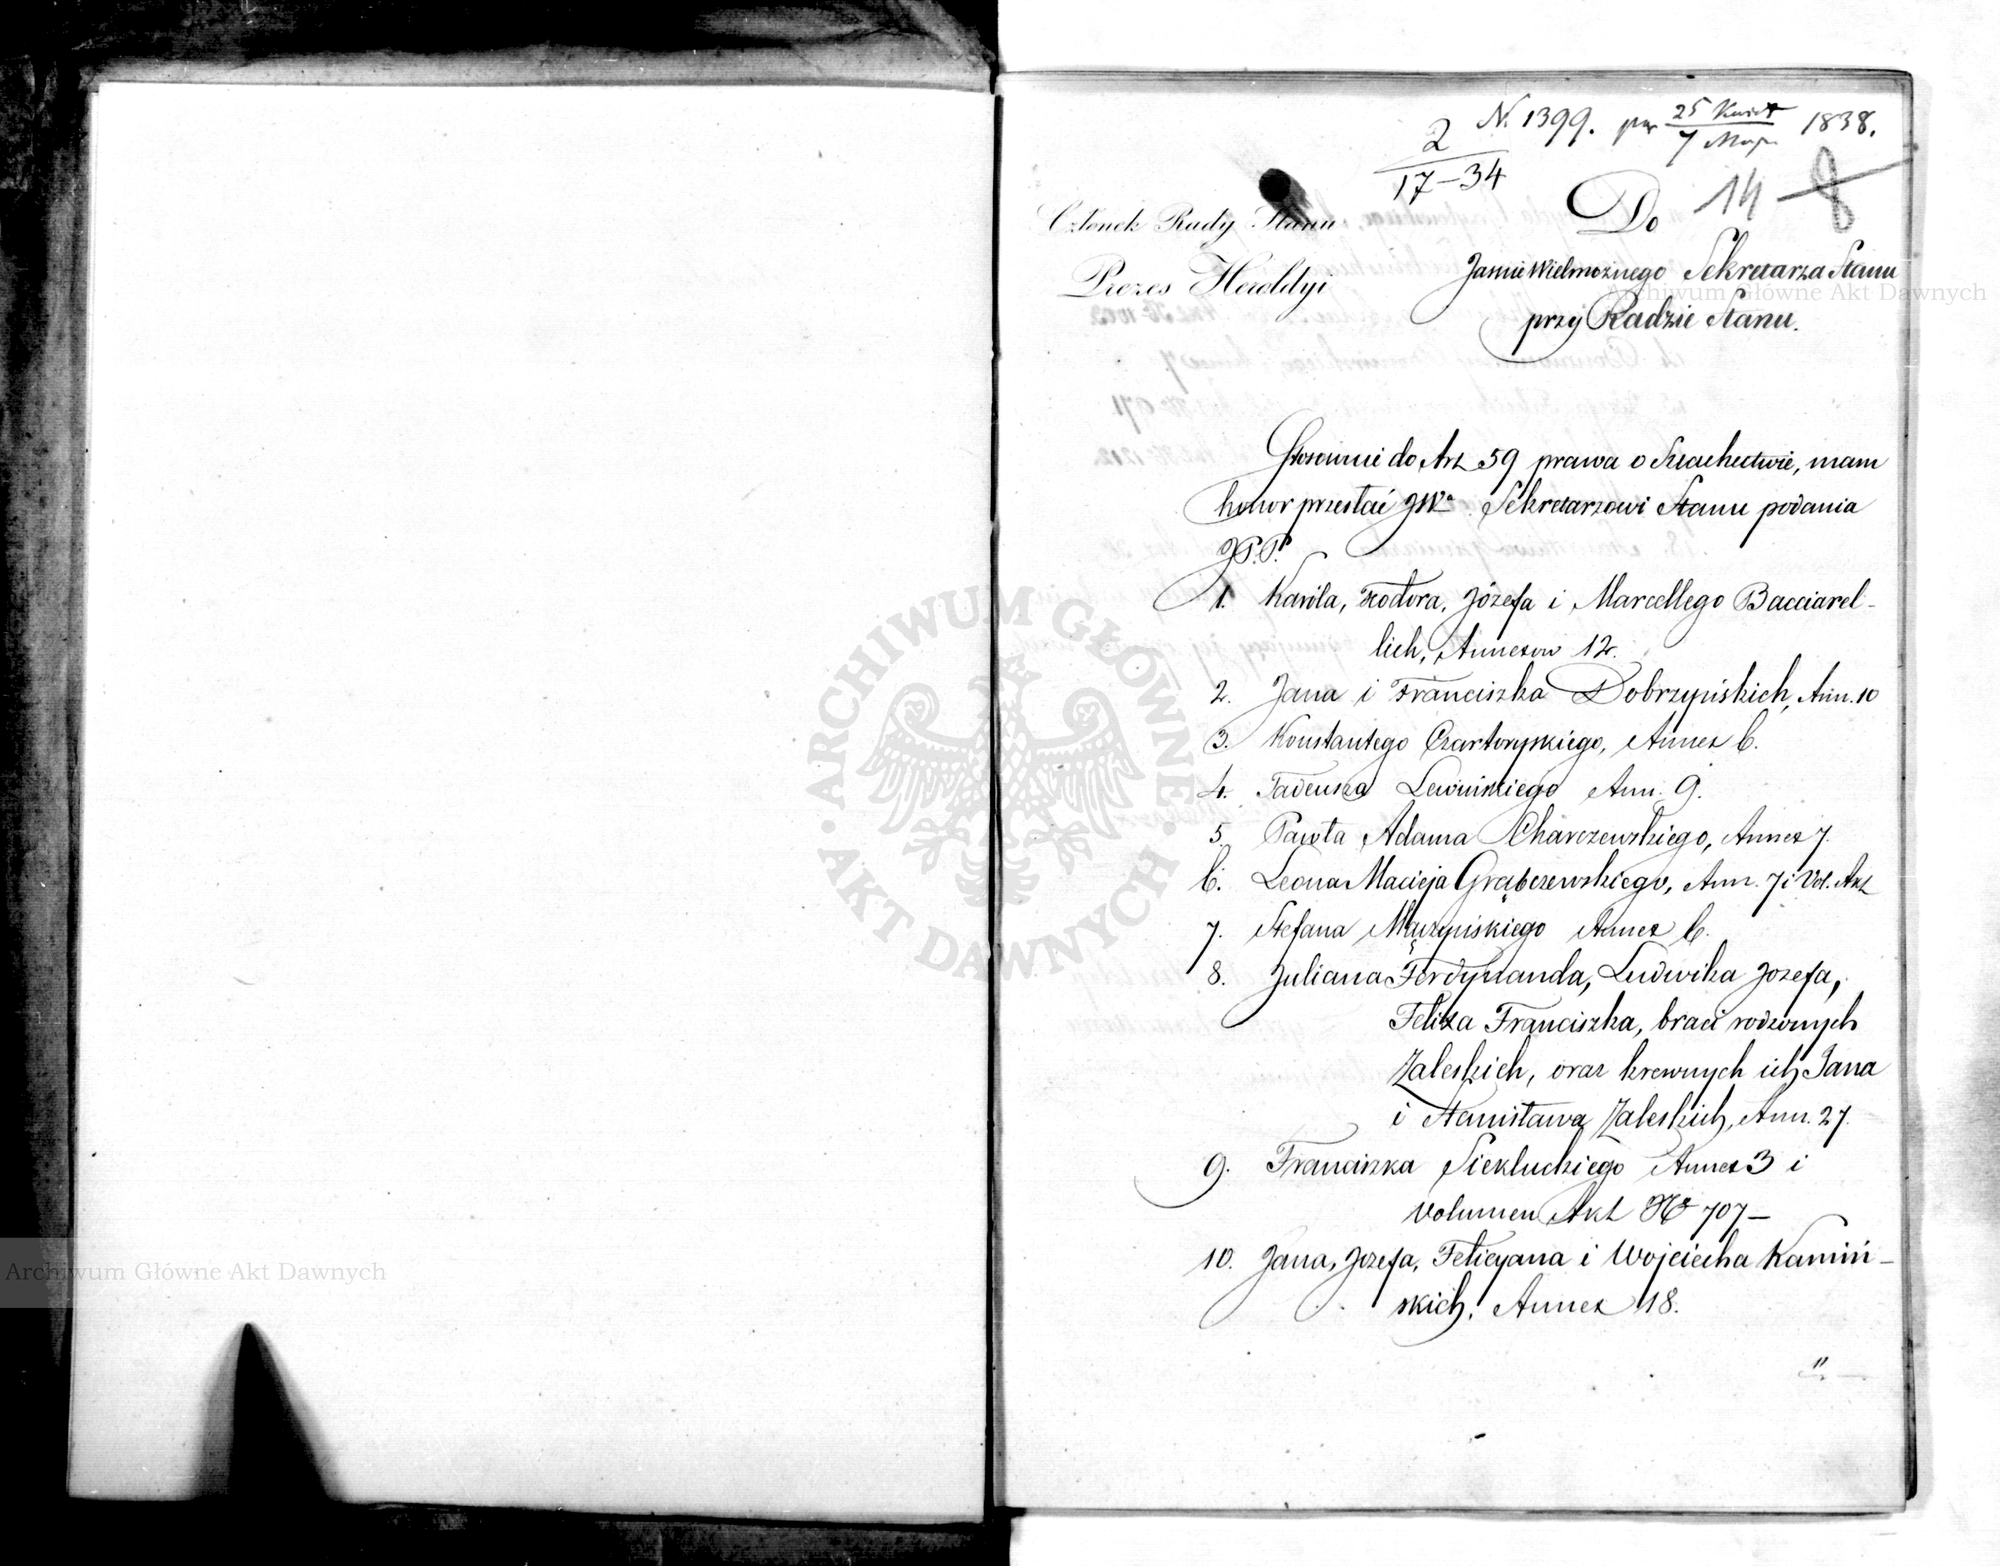 N. 1399. pr 25 Kwiet / 7 Maja 1838.
2
17–34
14 8
Członek Rady Stanu
Prezes Heroldyi
Do
JaśnieWielmożnego Sekretarza Stanu
przy Radzie Stanu.
Stosownie do Art 59 prawa o Szlachectwie, mam
honor przesłać JWu Sekretarzowi Stanu podania
JP.P.
1. Karola, Teodora, Józefa i Marcellego Bacciarel-
lich, Annexow 12.
2. Jana i Franciszka Dobrzyńskich, Ann. 10
3. Konstantego Czartoryskiego, Annex 6.
4. Tadeusza Lewińskiego Ann. 9.
5. Pawła Adama Charczewskiego, Annex 7.
6. Leona Macieja Grąbczewskiego, Ann. 7 i Vol. Akt
7. Stefana Mężyńskiego Annex 6.
8. Juliana Ferdynanda, Ludwika Jozefa,
Felixa Franciszka, braci rodzonych
Zaleskich, oraz krewnych ich Jana
i Stanisława Zaleskich, Ann. 27.
9. Franciszka Siekluckiego Annex 3 i
volumen Akt No 707—
10. Jana, Jozefa, Felicyana i Wojciecha Kamiń-
skich. Annex 18.
11
ARCHIWUM GŁÓWNE
AKT DAWNYCH
Archiwum Główne Akt Dawnych
Archiwum Główne Akt Dawnych